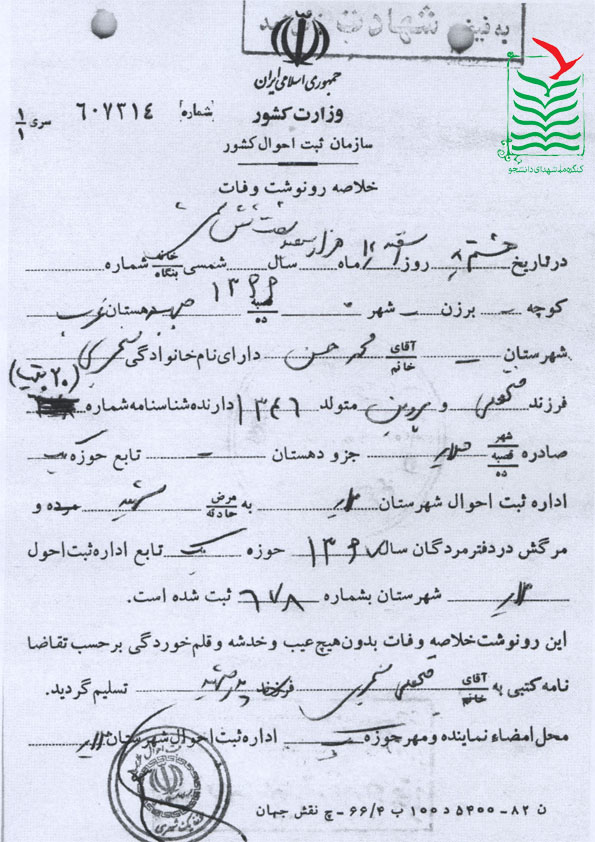 جمهوری اسلامی ایران
وزارت کشور
شماره ۶۰۷۳۱۴ سری ۱/۱
سازمان ثبت احوال کشور
خلاصه رونوشت وفات
کنگره ملی شهدای دانشجو
هزار سیصد شصت شش شمسی
در تاریخ هشتم ۸ روز اسفند ۱۲ ماه سال شمسی خانه بنگاه شماره
کوچه ـ برزن ـ شهر قصبه ده ۱۳۶۶ دهستان غرب
شهرستان ـ آقای خانم محمد حسن دارای نام خانوادگی
فرزند و پروین متولد ۱۳۴۶ دارنده شناسنامه شماره (۲۰)
صادره شهر قصبه ده ملایر جزو دهستان ـ تابع حوزه یک
اداره ثبت احوال شهرستان ملایر به مرض حادثه شهید مرده و
مرگش در دفتر مردگان سال ۱۳۶۷ حوزه یک تابع اداره ثبت احوال
ملایر شهرستان بشماره ۶۷۸ ثبت شده است.
این رونوشت خلاصه وفات بدون هیچ عیب و خدشه و قلم خوردگی بر حسب تقاضا
نامه کتبی به آقای خانم فرزند پدر شهید تسلیم گردید.
محل امضاء نماینده و مهر حوزه یک اداره ثبت احوال شهرستان ملایر
ن ۸۲ - ۵۴۰۰ د ۱۰۰ ب ۶۶/۴ - چ نقش جهان